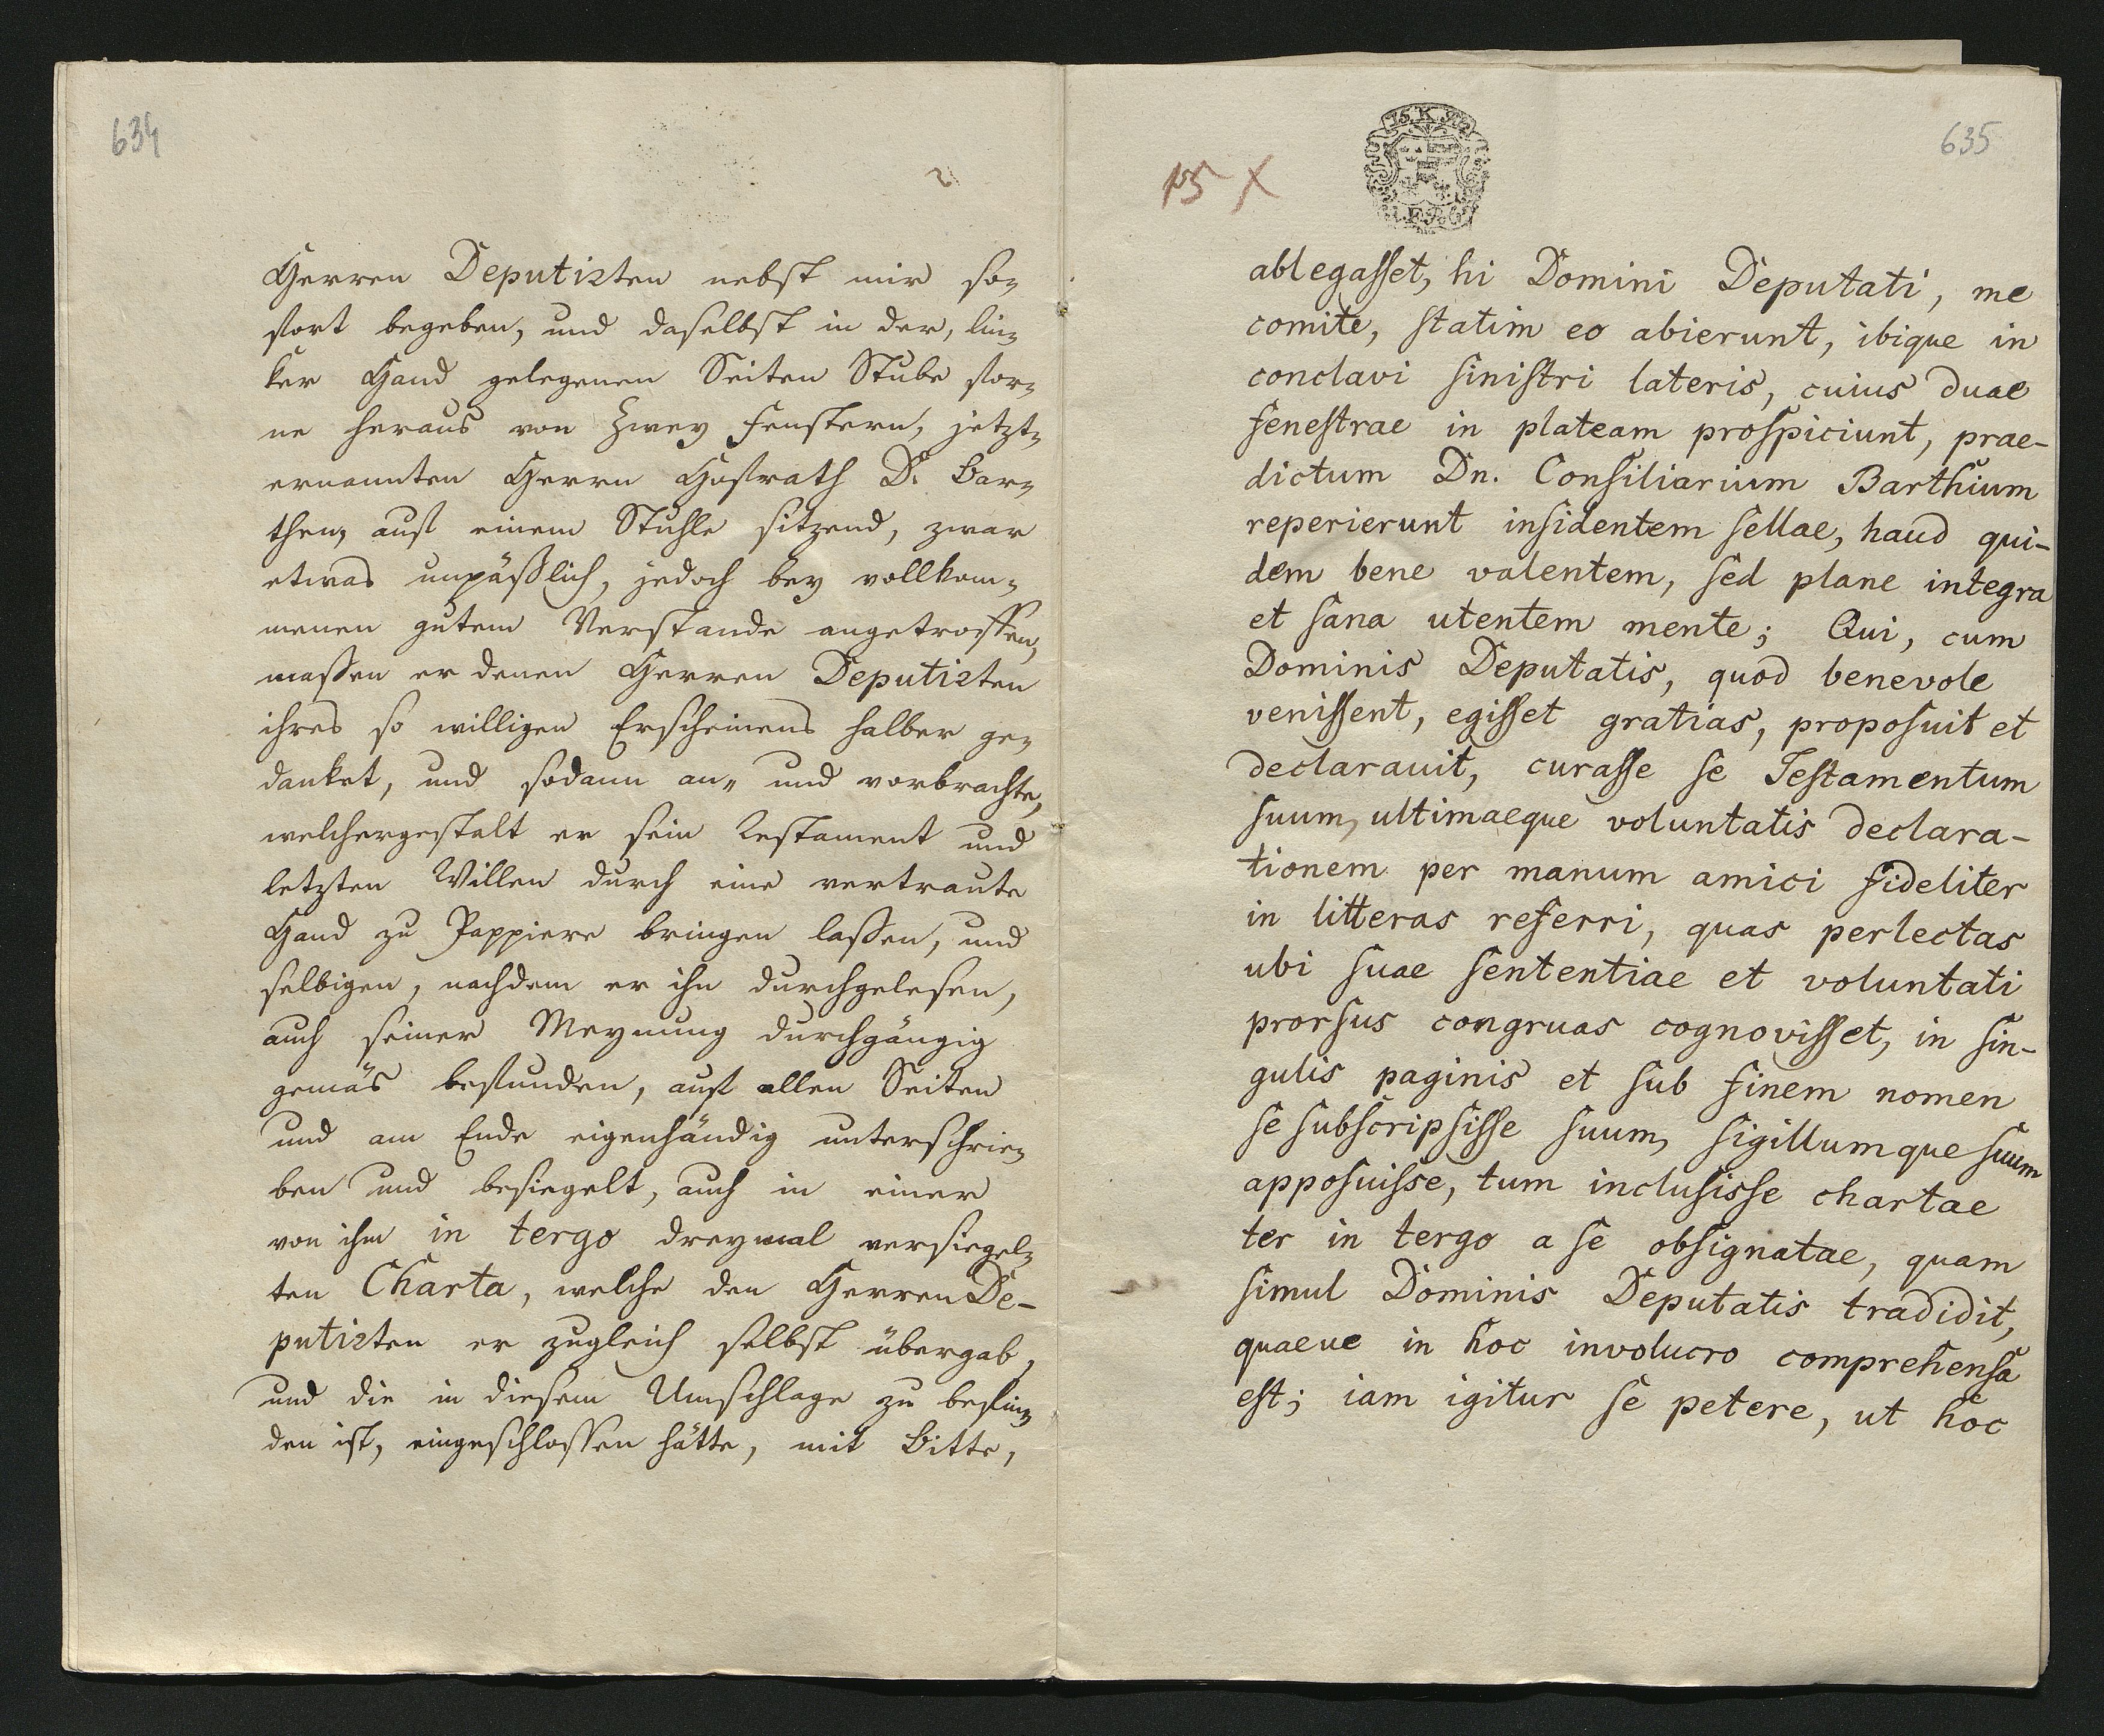 634
Herren Deputirten nebst mir so-
fort begeben, und daselbst in der, lin-
ker Hand gelegenen Seiten Stube vor-
ne heraus von Zwey Fenstern, jetzt-
ernannten Herrn Hofrath D. Bar-
then, auf einem Stuhle sitzend, zwar
etwas unpäßlich, jedoch bey vollkom-
menen gutem Verstande angetroffen,
maßen er denen Herren Deputirten
ihres so willigen Erscheinens halber ge-
danket, und sodann an- und vorbrachte,
welchergestalt er sein Testament und
letzten Willen durch eine vertraute
Hand zu Pappiere bringen laßen, und
selbigen, nachdem er ihn durchgelesen,
auch seiner Meynung durchgängig
gemäs befunden, auf allen Seiten
und am Ende eigenhändig unterschrie-
ben und besiegelt, auch in einer
von ihm in tergo dreymal versiegel-
ten Charta, welche den Herren De-
putirten er zugleich selbst übergab,
und die in diesem Umschlage zu befin-
den ist, eingeschlossen hätte, mit Bitte,
635
15 X
15. K
ablegasset, hi Domini Deputati, me
comite, statim eo abierunt, ibique in
conclavi sinistri lateris, cuius duae
fenestrae in plateam prospiciunt, prae-
dictum Dn. Consiliarium Barthium
reperierunt insidentem sellae, haud qui-
dem bene valentem, sed plane integra
et sana utentem mente; Qui, cum
Dominis Deputatis, quod benevole
venissent, egisset gratias, proposuit et
declarauit, curasse se Testamentum
suum, ultimaeque voluntatis declara-
tionem per manum amici fideliter
in litteras referri, quas perlectas
ubi suae sententiae et voluntati
prorsus congruas cognovisset, in sin-
gulis paginis et sub finem nomen
se subscripsisse suum, sigillumque suum
apposuisse, tum inclusisse chartae
ter in tergo a se obsignatae, quam
simul Dominis Deputatis tradidit,
quaeue in hoc involucro comprehensa
est; iam igitur se petere, ut hoc